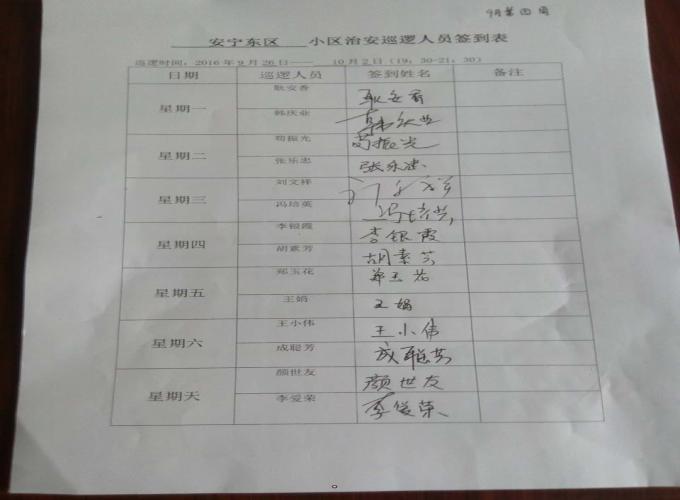 9月第四周
安宁东区 小区治安巡逻人员签到表
巡逻时间：2016年9月26日—— 10月2日（19：30-21：30）
日期 巡逻人员 签到姓名 备注
星期一
耿安香 耿安香
韩庆业 韩庆业
星期二
苟振光 苟振光
张乐忠 张乐忠
星期三
刘文祥
冯培英 冯培英
星期四
李银霞 李银霞
胡素芳 胡素芳
星期五
郑玉花 郑玉花
王娟 王娟
星期六
王小伟 王小伟
成聪芳 成聪芳
星期天
颜世友 颜世友
李爱荣 李爱荣